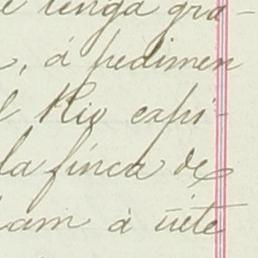 e tenga gra-
, á pedimen
l Rio capi-
la finca de
am á siete